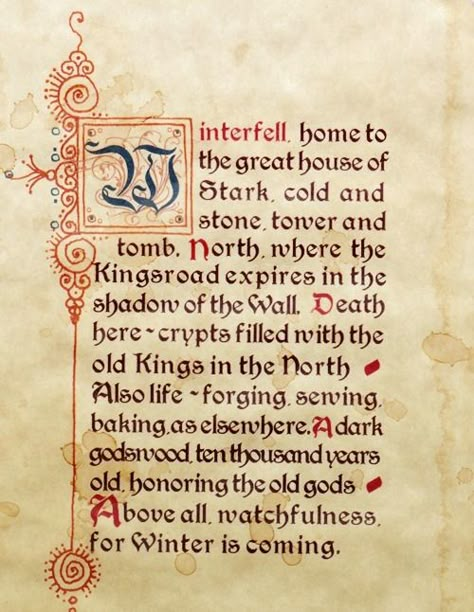 Winterfell, home to
the great house of
Stark, cold and
stone, tower and
tomb. North, where the
Kingsroad expires in the
shadow of the Wall. Death
here ~ crypts filled with the
old Kings in the North
Also life ~ forging, sewing,
baking, as elsewhere. A dark
godswood, ten thousand years
old, honoring the old gods
Above all, watchfulness,
for Winter is coming.